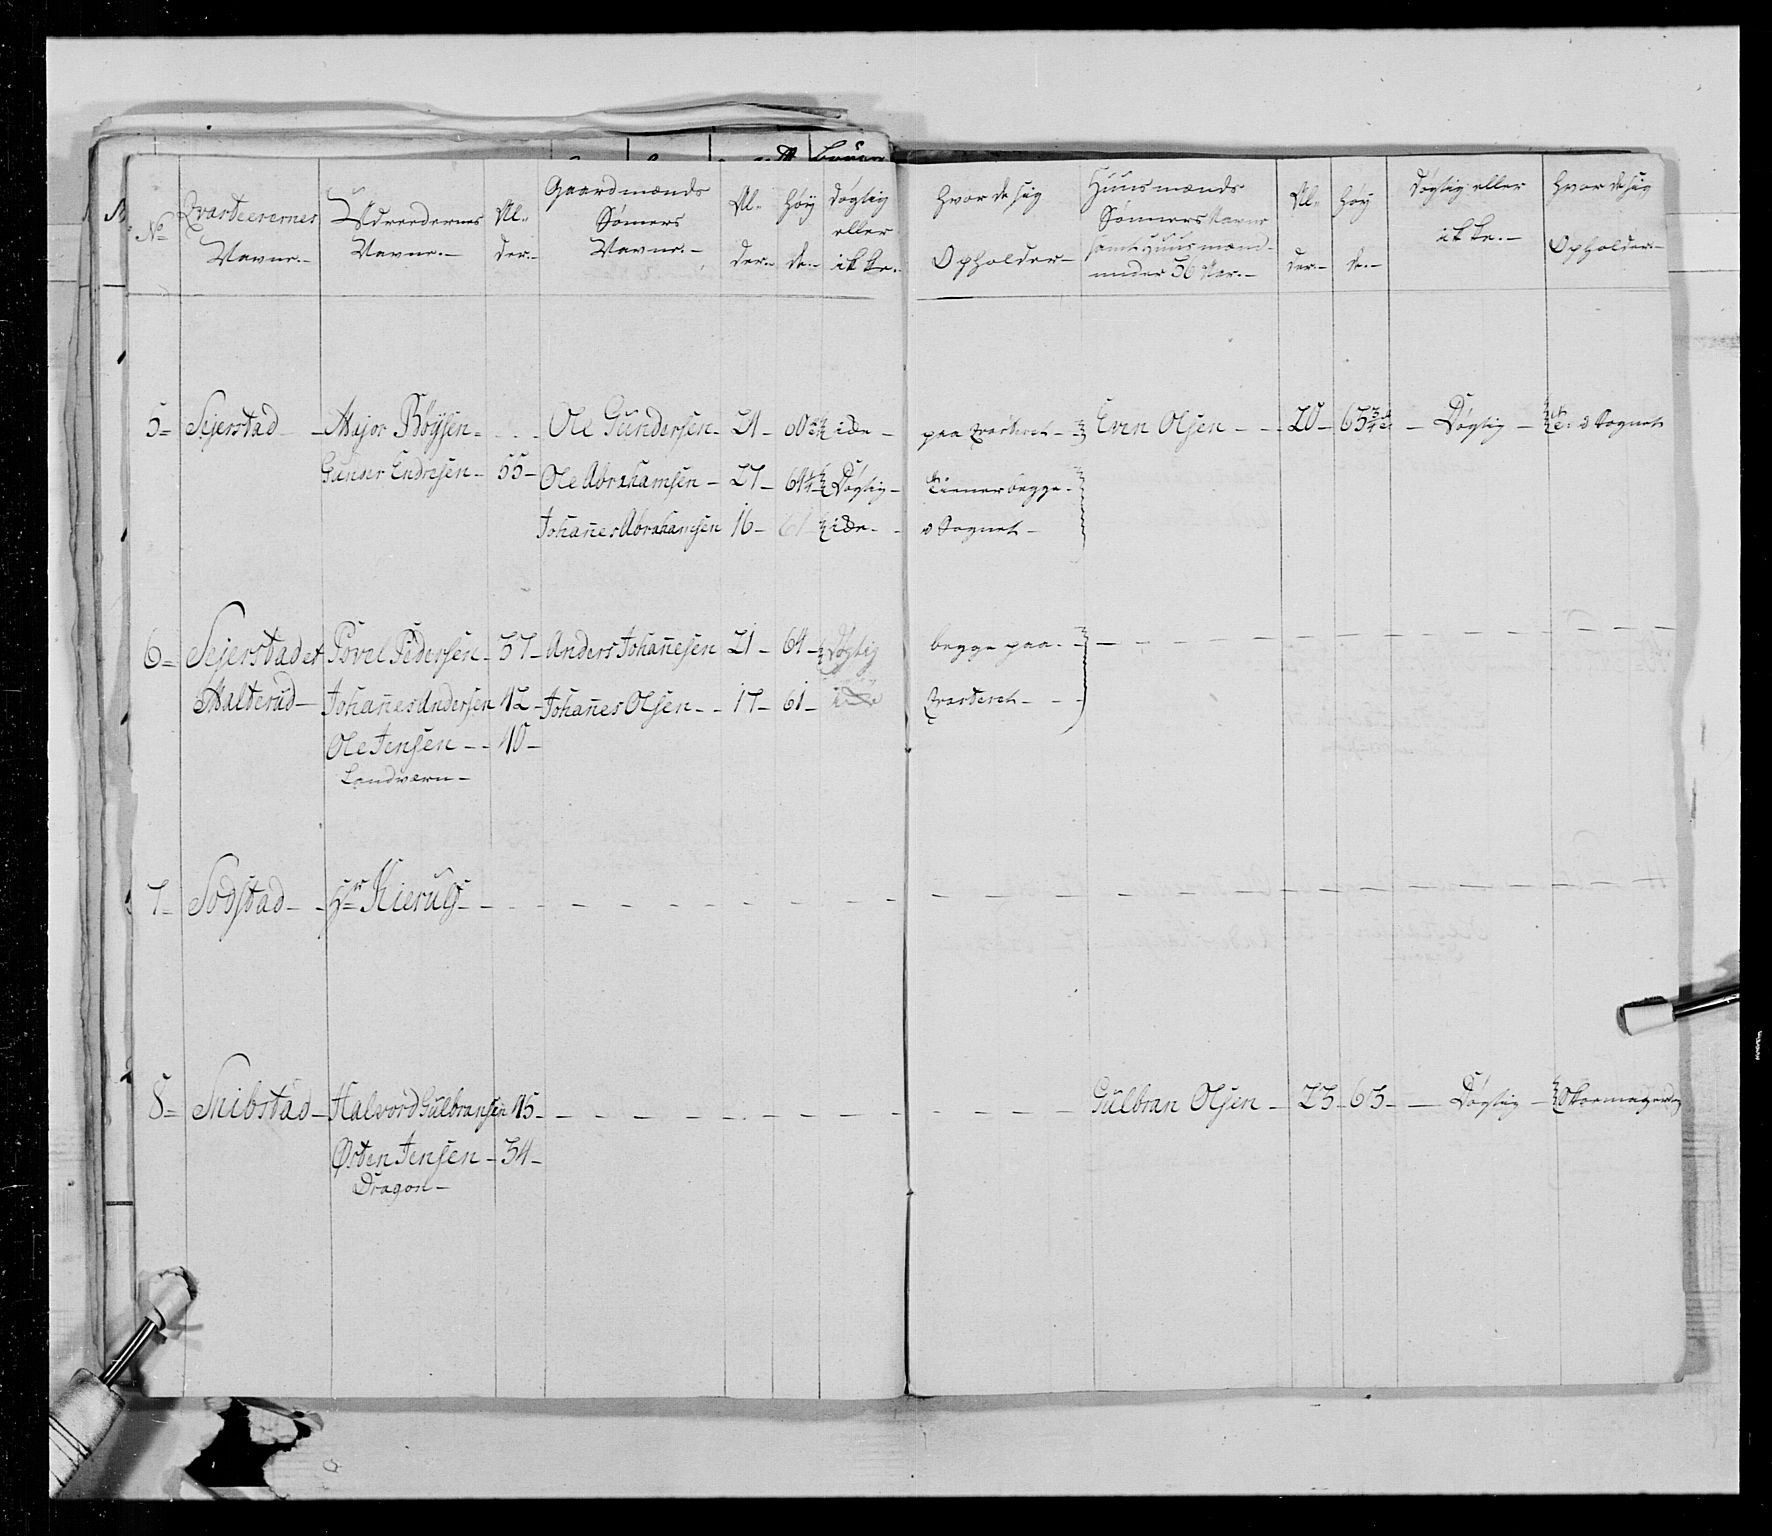 No Qvarteerernes Navne.- Udreedernes Navne.- Al- der.- Gaardmænds Sønners Navne.- Al- der.- Høy de.- døgtig eller ikke.- Hvor de sig Opholder- Huusmænds Sønners Navne samt Huusmænd under 36 Aar.- Al- der.- Høy de.- døgtig eller ikke.- Hvor de sig Opholder-
5- Sejerstad - Major Böÿsen - Ole Gundersen - 24 - 60 - icke - paa Qvarteret - Even Olsen - 20 - 63 3/4 - Døgtig - i Sognet
Gunder Endresen - 55 - Ole Abrahamsen - 27 - 64 1/4 Døgtig - tiener begge -
Johañes Abrahamsen 16 - 61 icke - i Sognet -
6- Sejerstad et Povel Pedersen - 37 - Anders Johañesen 21 - 64 - Døgtig begge paa -
Malterud - Johañes Andersen 42 - Johañes Olsen - 17 - 61 - icke Qvarteret -
Ole Jensen - 40 -
Landværn -
7- Sodstad - Hr Kierulf -
8- Snibstad - Halvord Gulbransen 45 - Gulbran Olsen - 23 - 63 - Døgtig - Skomager
Østen Jensen - 34 -
Dragon -